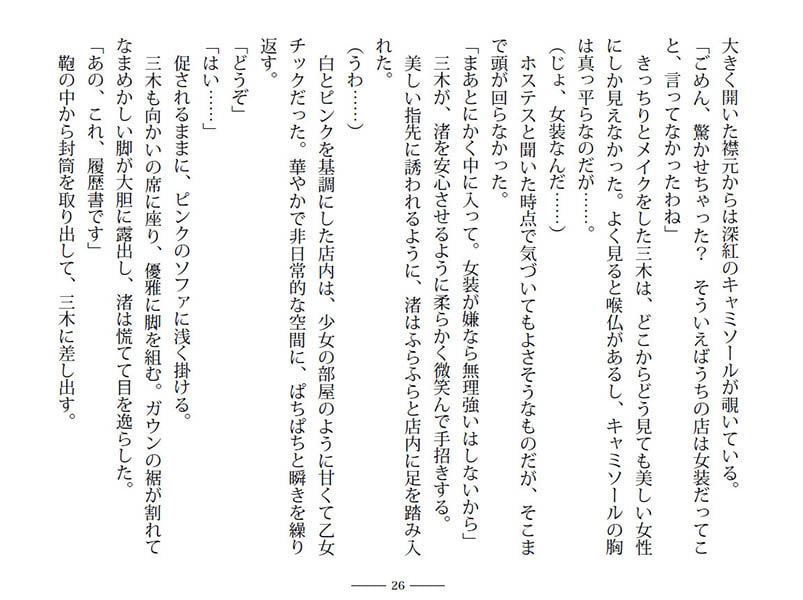 大きく開いた襟元からは深紅のキャミソールが覗いている。
「ごめん、驚かせちゃった？　そういえばうちの店は女装だってこ
と、言ってなかったわね」
　きっちりとメイクをした三木は、どこからどう見ても美しい女性
にしか見えなかった。よく見ると喉仏があるし、キャミソールの胸
は真っ平らなのだが……。
（じょ、女装なんだ……）
　ホステスと聞いた時点で気づいてもよさそうなものだが、そこま
で頭が回らなかった。
「まあとにかく中に入って。女装が嫌なら無理強いはしないから」
　三木が、渚を安心させるように柔らかく微笑んで手招きする。
　美しい指先に誘われるように、渚はふらふらと店内に足を踏み入
れた。
（うわ……）
　白とピンクを基調にした店内は、少女の部屋のように甘くて乙女
チックだった。華やかで非日常的な空間に、ぱちぱちと瞬きを繰り
返す。
「どうぞ」
「はい……」
　促されるままに、ピンクのソファに浅く掛ける。
　三木も向かいの席に座り、優雅に脚を組む。ガウンの裾が割れて
なまめかしい脚が大胆に露出し、渚は慌てて目を逸らした。
「あの、これ、履歴書です」
　鞄の中から封筒を取り出して、三木に差し出す。
26